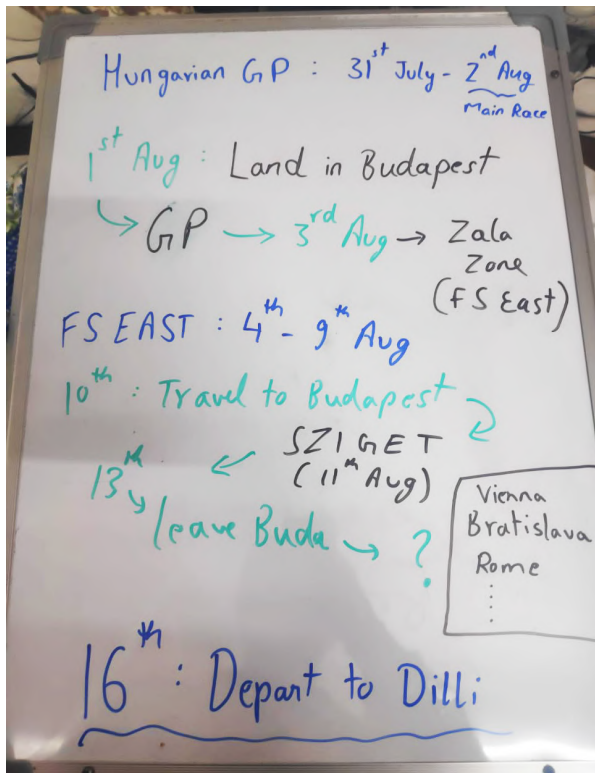 Hungarian GP : 31st July - 2nd Aug
Main Race
1st Aug : Land in Budapest
↳ GP → 3rd Aug → Zala
Zone
(FS East)
FS EAST : 4th - 9th Aug
10th : Travel to Budapest
SZIGET
(11th Aug)
13th
↳ leave Buda → ?
Vienna
Bratislava
Rome
⋮
16th : Depart to Dilli